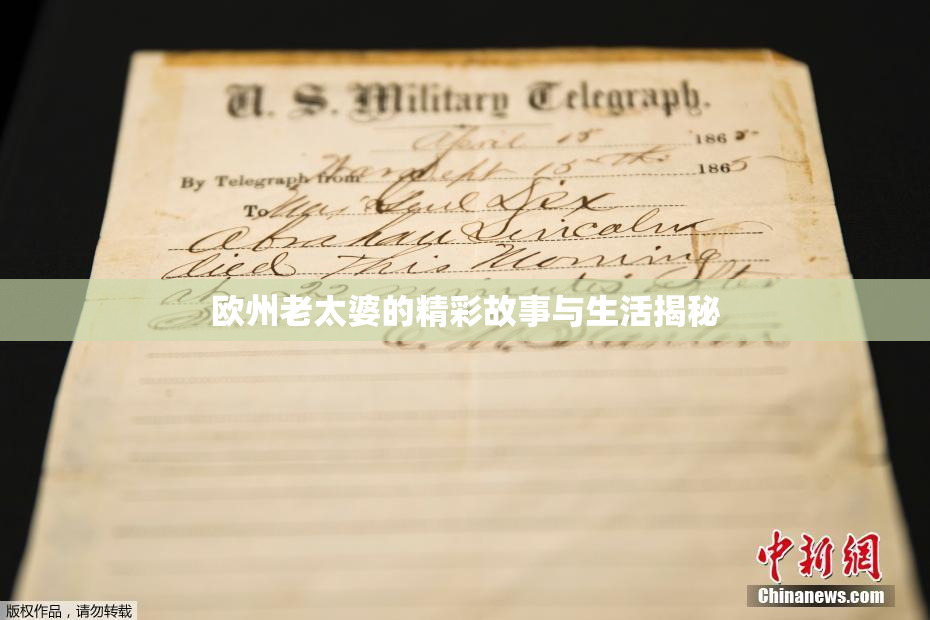 U. S. Military Telegraph.
April 15 1865
By Telegraph from War Dept 15th 1865
To Maj Genl Dix
Abraham Lincoln
died This Morning
at 22 minutes after
欧州老太婆的精彩故事与生活揭秘
E. M. Stanton
中新网
Chinanews.com
版权作品，请勿转载